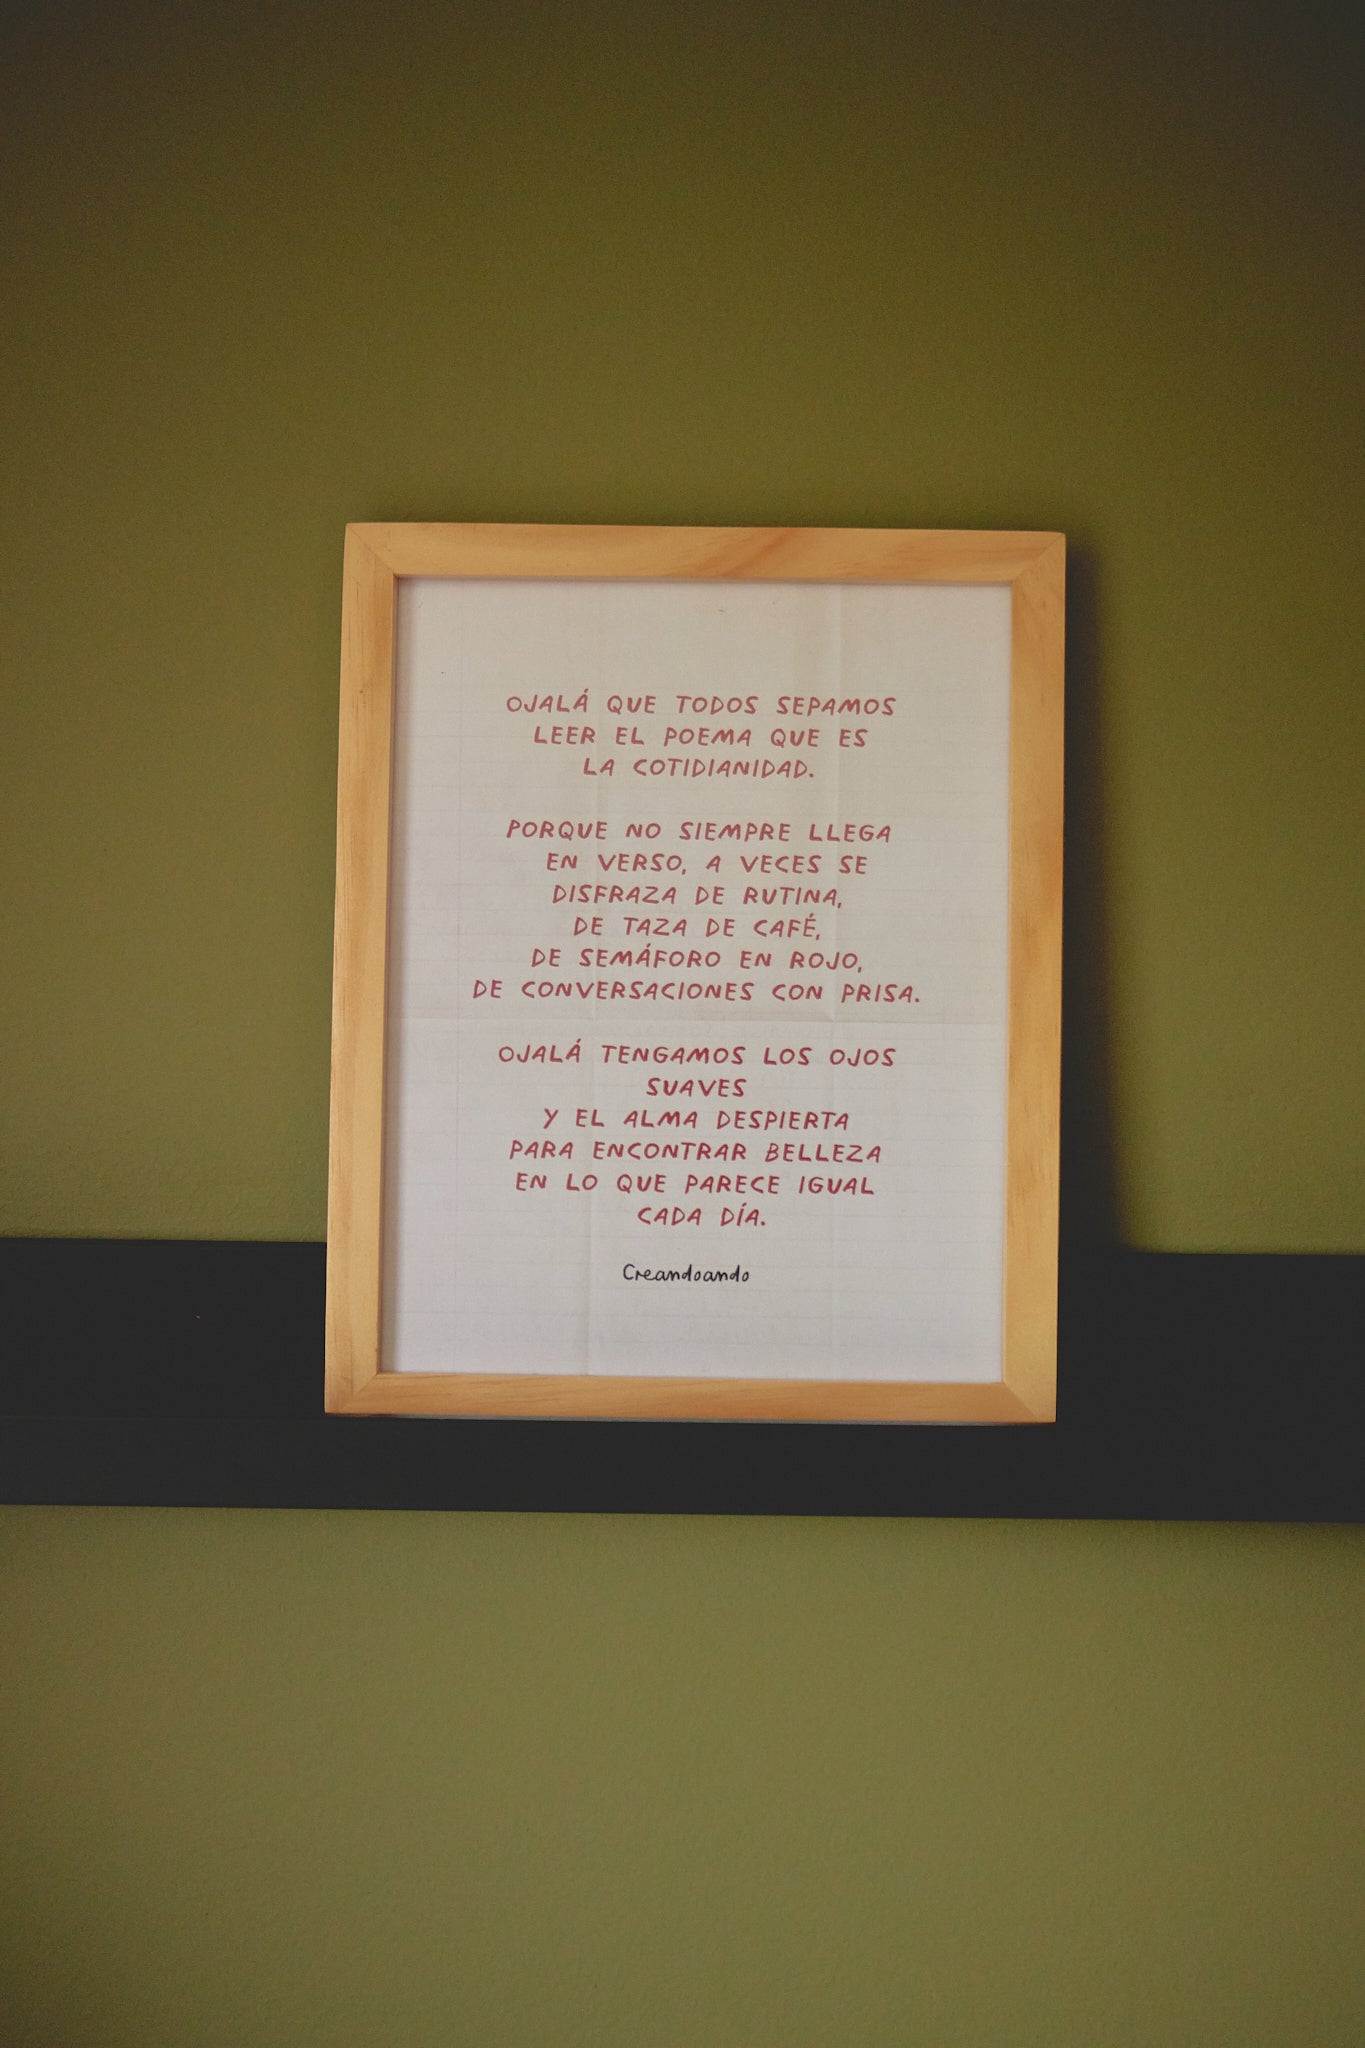 OJALÁ QUE TODOS SEPAMOS
LEER EL POEMA QUE ES
LA COTIDIANIDAD.
PORQUE NO SIEMPRE LLEGA
EN VERSO, A VECES SE
DISFRAZA DE RUTINA,
DE TAZA DE CAFÉ,
DE SEMÁFORO EN ROJO,
DE CONVERSACIONES CON PRISA.
OJALÁ TENGAMOS LOS OJOS
SUAVES
Y EL ALMA DESPIERTA
PARA ENCONTRAR BELLEZA
EN LO QUE PARECE IGUAL
CADA DÍA.
Creandoando